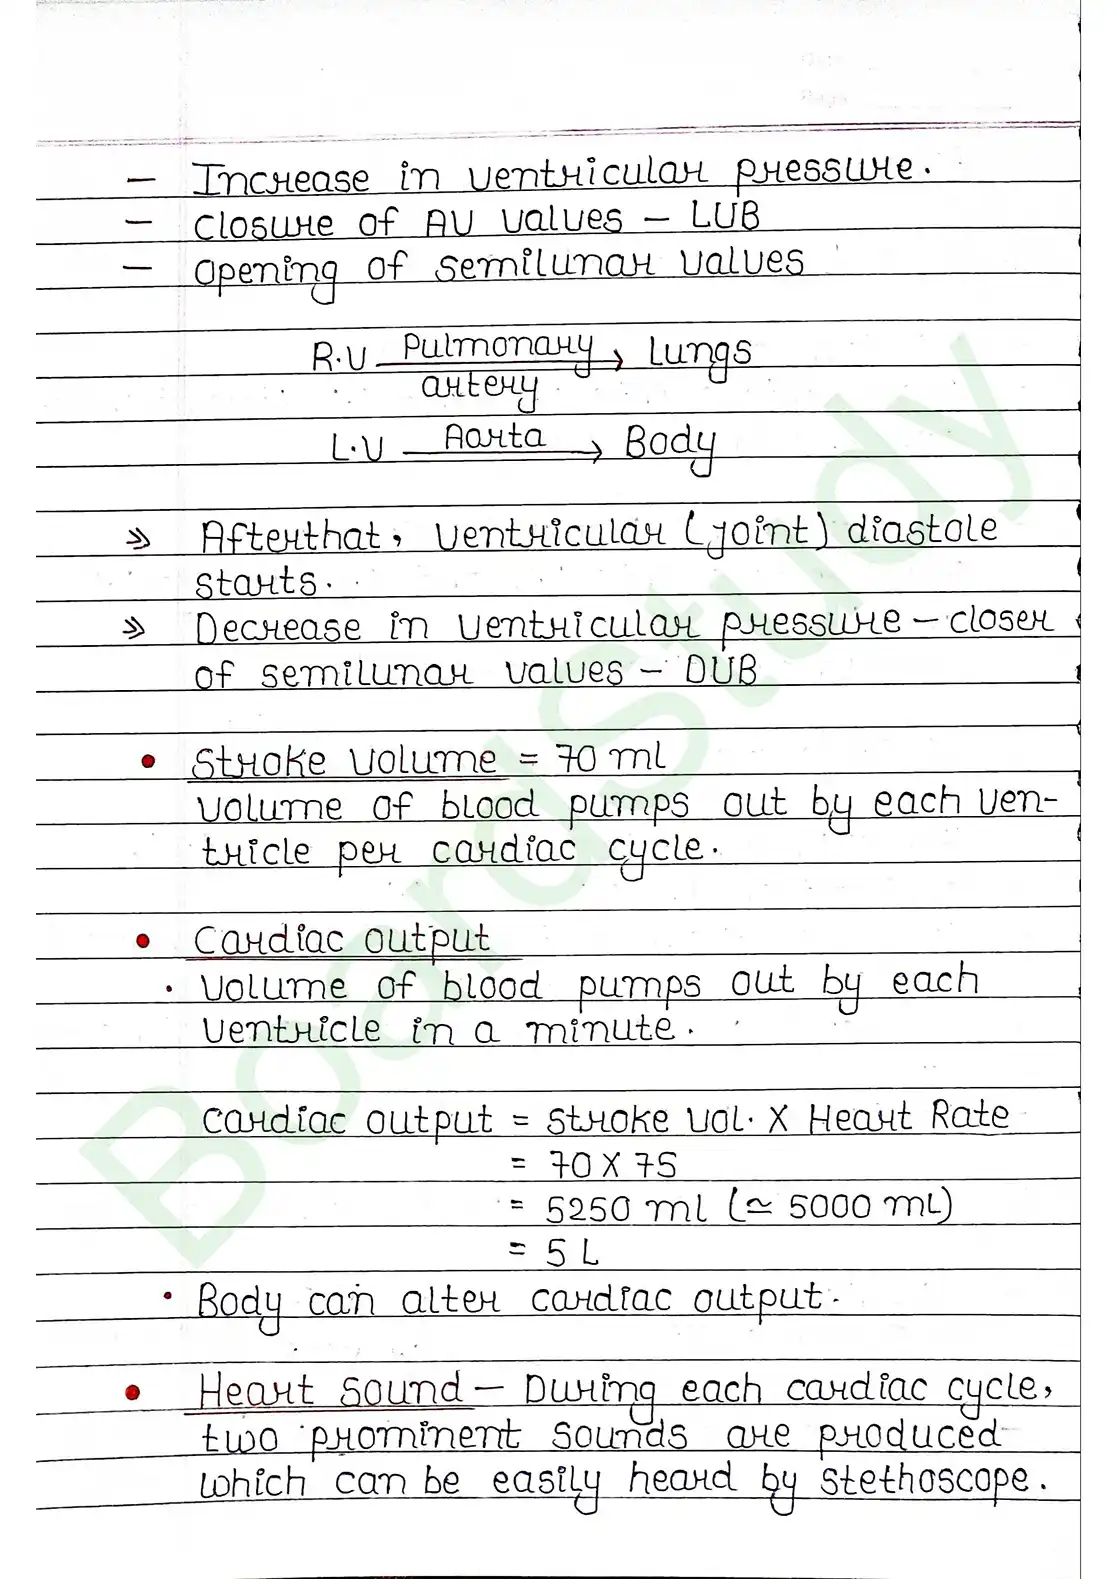 - Increase in ventricular pressure.
- closure of AV values - LUB
- opening of semilunar values
R.V Pulmonary artery → Lungs
L.V Aorta → Body
» Afterthat, ventricular (joint) diastole
starts.
» Decrease in ventricular pressure - closer
of semilunar values - DUB
• Stroke volume = 70 ml
volume of blood pumps out by each ven-
tricle per cardiac cycle.
• Cardiac output
· Volume of blood pumps out by each
ventricle in a minute.
cardiac output = stroke vol. X Heart Rate
= 70 X 75
= 5250 ml (≃ 5000 mL)
= 5 L
· Body can alter cardiac output.
• Heart sound - During each cardiac cycle,
two prominent sounds are produced
which can be easily heard by stethoscope.
BoardStudy